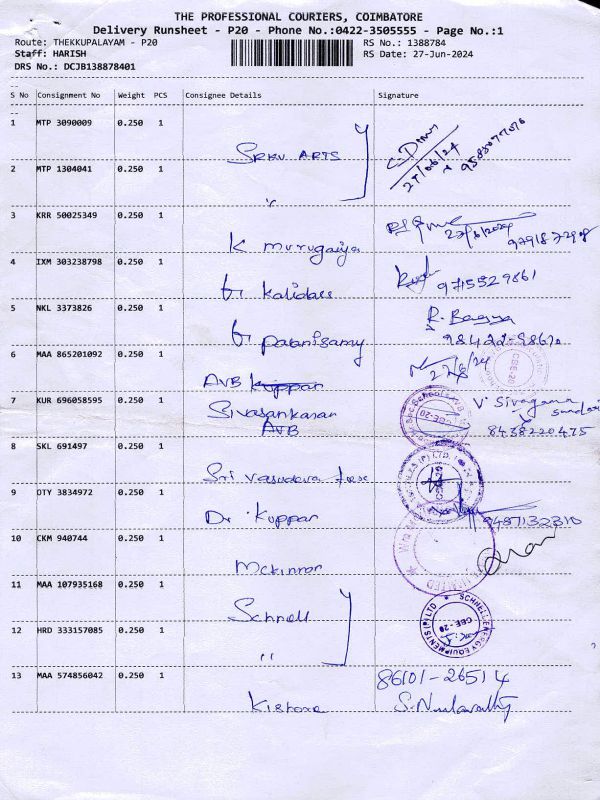 THE PROFESSIONAL COURIERS, COIMBATORE
Delivery Runsheet - P20 - Phone No.:0422-3505555 - Page No.:1
Route: THEKKUPALAYAM - P20 RS No.: 1388784
Staff: HARISH RS Date: 27-Jun-2024
DRS No.: DCJB138878401
S No Consignment No Weight PCS Consignee Details Signature
1 MTP 3090009 0.250 1
SRRU ARTS
27/06/24
2 MTP 1304041 0.250 1
"
3 KRR 50025349 0.250 1
K murugaiya
27/6/2024
4 IXM 303238798 0.250 1
9715529861
tr kalidars
5 NKL 3373826 0.250 1
R. Bagya
tr palanisamy
6 MAA 865201092 0.250 1
27/6/24
CBE-20
AVB Kuppar
7 KUR 696058595 0.250 1
V Sivagama
Sundari
Sivasankaran
AVB
8438220475
8 SKL 691497 0.250 1
Sri Vasudeva
9 OTY 3834972 0.250 1
Dr Kuppar
9487132310
10 CKM 940744 0.250 1
Mckinnon
11 MAA 107935168 0.250 1
Schnell
SCHNELL ENERGY EQUIPMENTS (P) LTD
CBE-20
12 HRD 333157085 0.250 1
"
13 MAA 574856042 0.250 1
86101-26514
Kishore